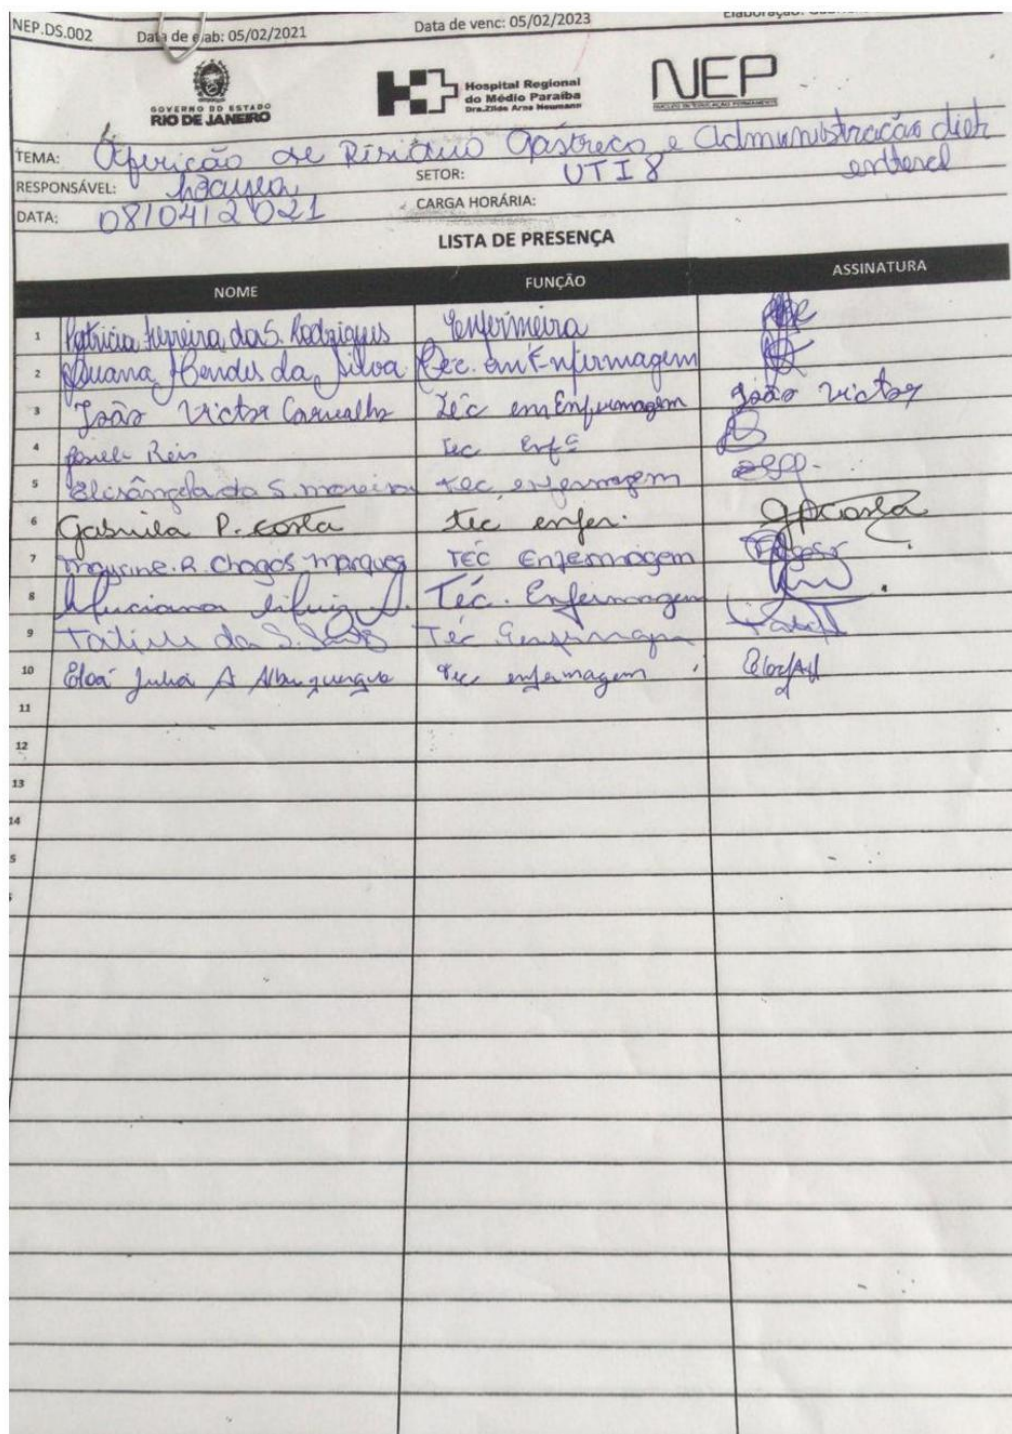 NEP.DS.002 Data de elab: 05/02/2021 Data de venc: 05/02/2023 Elaboração:
GOVERNO DO ESTADO
RIO DE JANEIRO
Hospital Regional
do Médio Paraíba
Dra.Zilda Arns Neumann
NEP
NÚCLEO DE EDUCAÇÃO PERMANENTE
TEMA: Aferição de Resíduo Gástrico e Administração dieta
enteral
RESPONSÁVEL: SETOR: UTI 8
DATA: 08/04/2021 CARGA HORÁRIA:
LISTA DE PRESENÇA
NOME FUNÇÃO ASSINATURA
1 Patricia Ferreira da S. Rodrigues Enfermeira
2 Luana Mendes da Silva Tec. em Enfermagem
3 João Victor Carvalho Téc em Enfermagem João Victor
4 Reis tec enfª
5 Elisângela da S. moreira tec enfermagem
6 Gabriela P. costa tec enfer. GPCosta
7 Mayrine. R. Chagas Marques TÉC Enfermagem
8 Luciana Téc. Enfermagem
9 da S. Téc Enfermagem
10 Eloá Julia A Albuquerque tec enfermagem
11
12
13
14
5